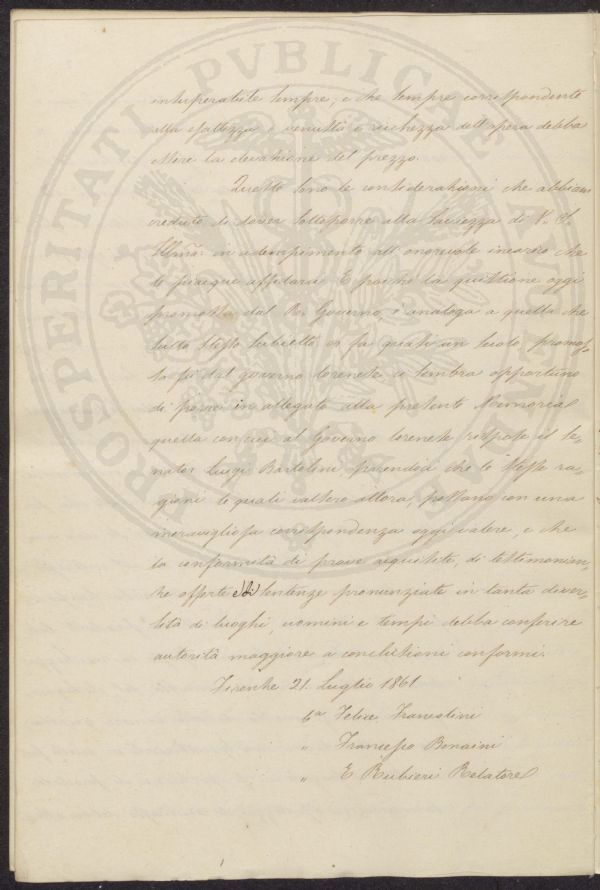 PROSPERITATI PVBLICAE AVGENDAE
insuperabile sempre; e che sempre corrispondente
alla esattezza e venustà e ricchezza dell'opera debba
essere la elevazione del prezzo.
Queste sono le considerazioni che abbiam
creduto di dover sottoporre alla saviezza di V. S.
Illma: in adempimento all'onorevole incarico che
le piacque affidarci. E poichè la quistione oggi
promossa dal R. Governo, è analoga a quella che
sullo stesso subietto or fa quasi un secolo, promos-
sa fù dal governo lorenese ci sembra opportuno
di porre in allegato alla presente Memoria
quella con cui al Governo lorenese rispose il Se-
nator Luigi Bartolini, parendoci che le stesse ra-
gioni le quali valsero allora, possano con una
maravigliosa corrispondenza oggi valere, e che
la conformità di prove acquistate, di testimonian-
ze offerte di sentenze pronunziate in tanta diver-
sità di luoghi, uomini e tempi debba conferire
autorità maggiore a conclusioni conformi.
Firenze 21. Luglio 1861
Felice Francolini
" Francesco Bonaini
" E Rubieri Relatore